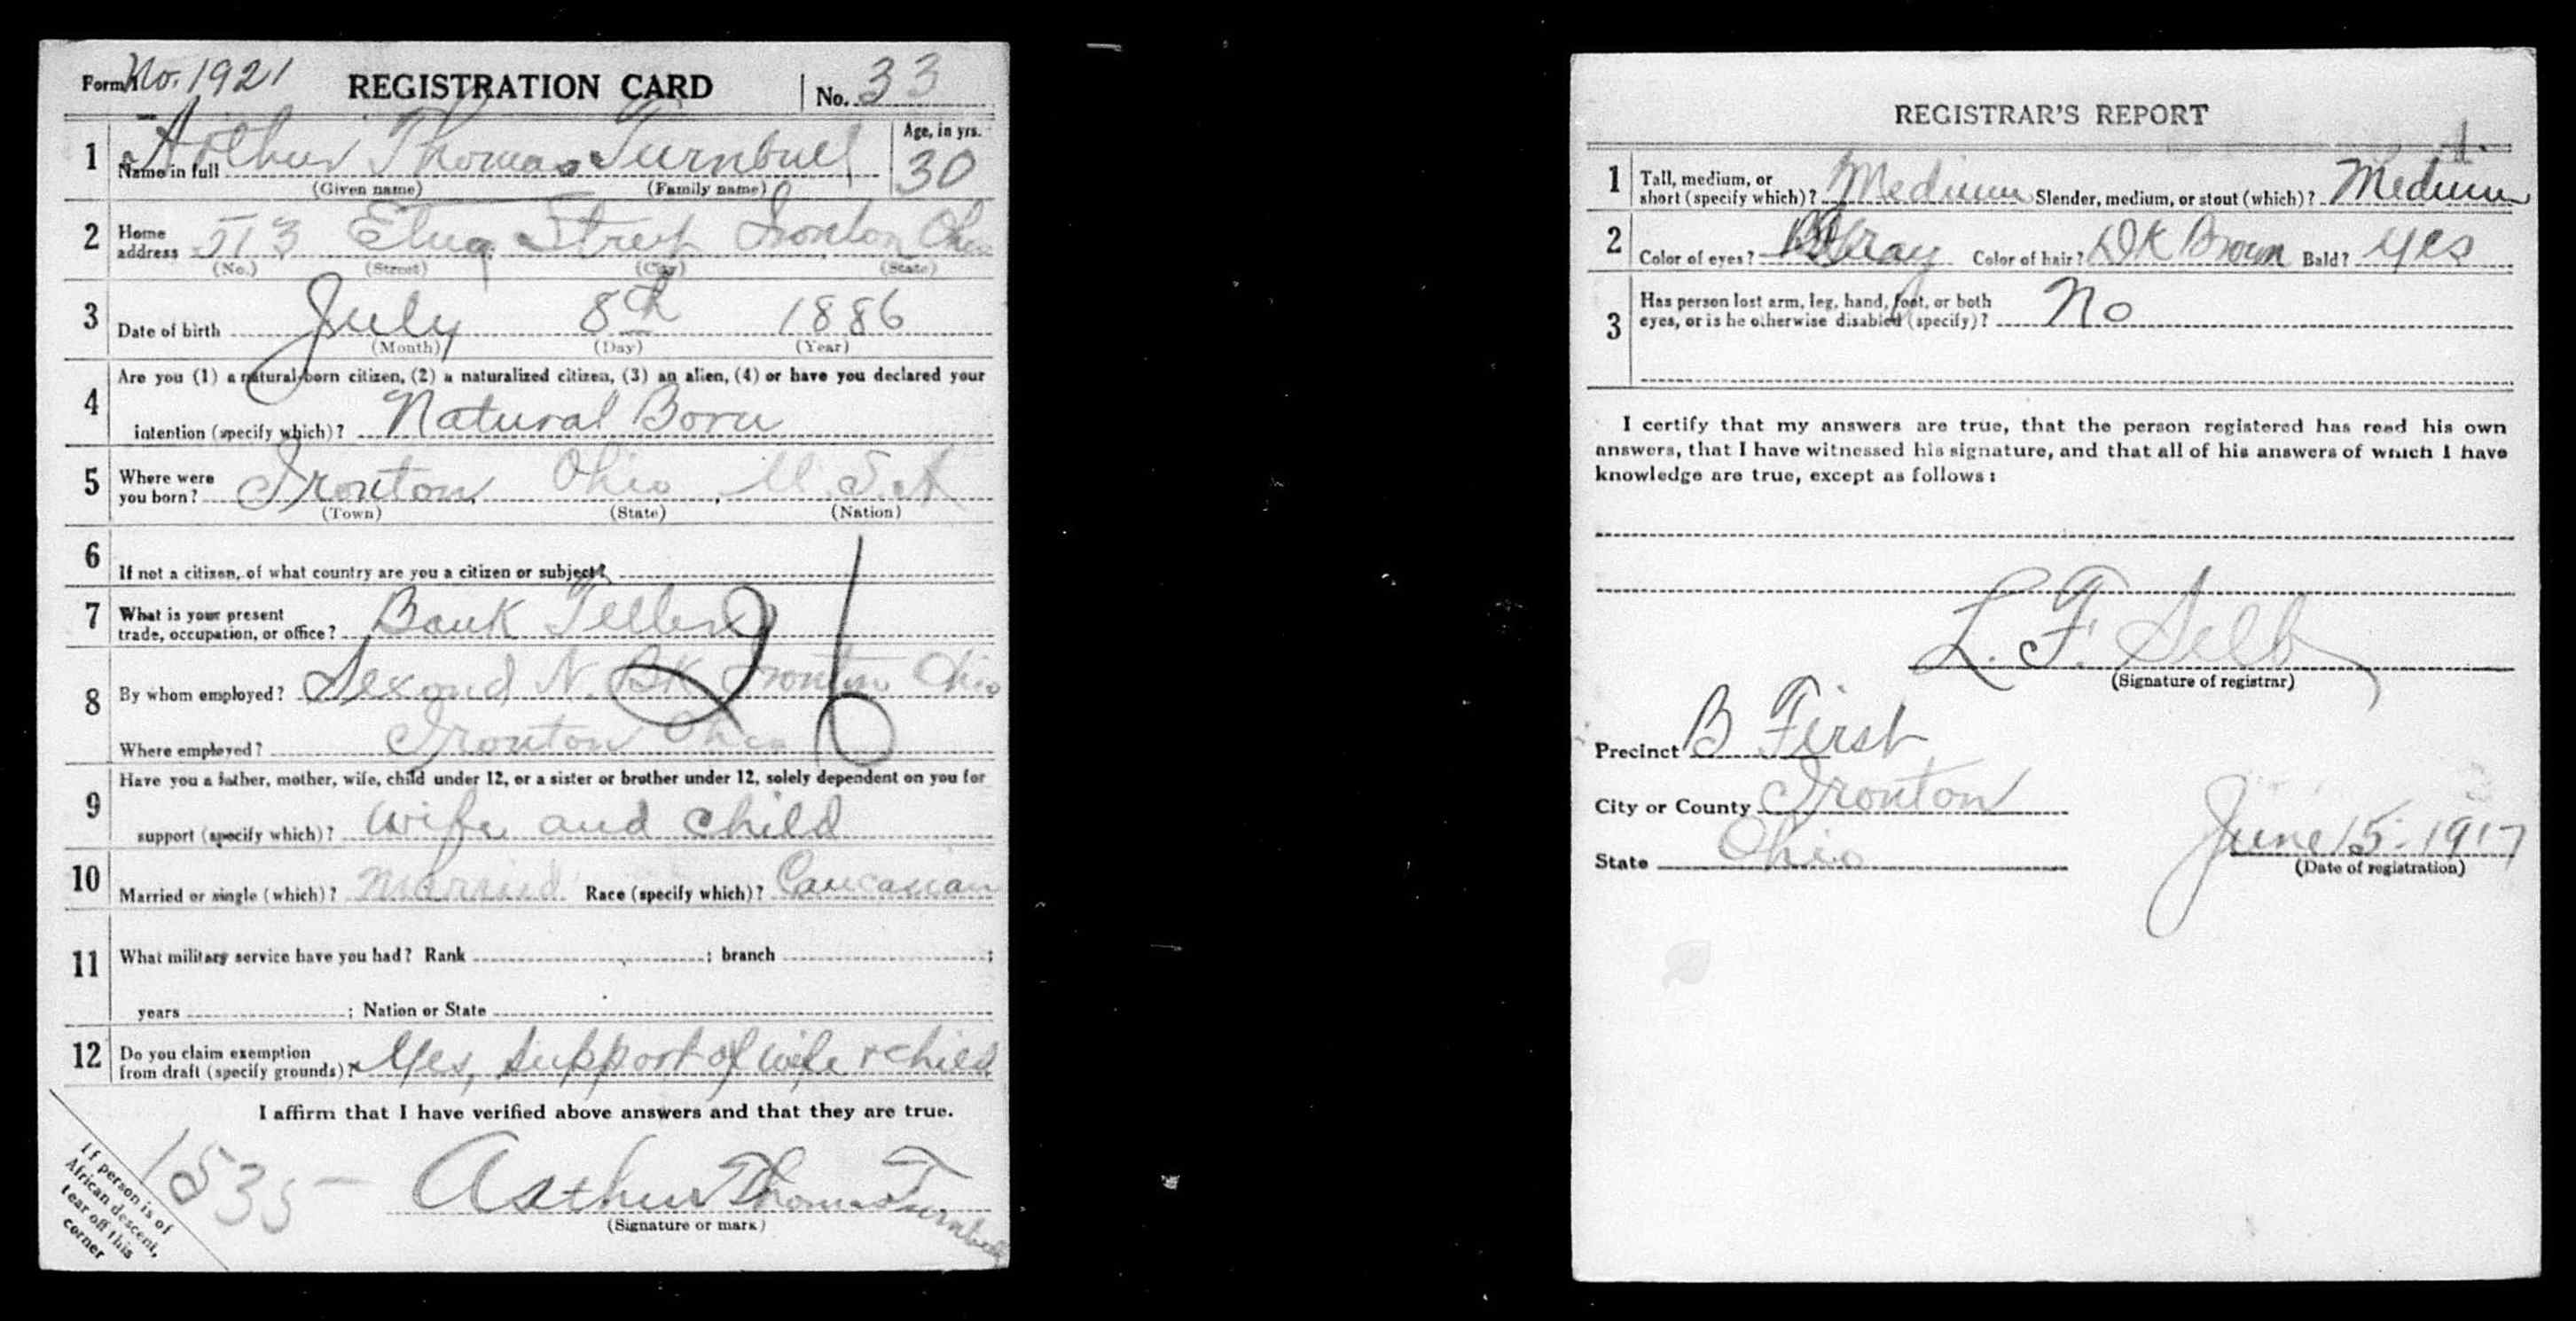 Form 1 No. 1921 REGISTRATION CARD No. 33
1 Name in full Arthur Thomas Turnbull Age, in yrs. 30
(Given name) (Family name)
2 Home address 513 Etna Street Ironton Ohio
(No.) (Street) (City) (State)
3 Date of birth July 8th 1886
(Month) (Day) (Year)
4 Are you (1) a natural-born citizen, (2) a naturalized citizen, (3) an alien, (4) or have you declared your
intention (specify which)? Natural Born
5 Where were you born? Ironton, Ohio, U.S.A
(Town) (State) (Nation)
6 If not a citizen, of what country are you a citizen or subject?
7 What is your present trade, occupation, or office? Bank Teller
26
8 By whom employed? Second N. BK Ironton Ohio
Where employed? Ironton Ohio
9 Have you a father, mother, wife, child under 12, or a sister or brother under 12, solely dependent on you for
support (specify which)? wife and child
10 Married or single (which)? Married Race (specify which)? Caucasian
11 What military service have you had? Rank ; branch ;
years ; Nation or State
12 Do you claim exemption from draft (specify grounds)? Yes, support of wife + child
I affirm that I have verified above answers and that they are true.
Arthur Thomas Turnbull
(Signature or mark)
If person is of
African descent,
tear off this
corner
1535
REGISTRAR'S REPORT
1 Tall, medium, or short (specify which)? Medium Slender, medium, or stout (which)? Medium
2 Color of eyes? Gray Color of hair? DK Brown Bald? Yes
3 Has person lost arm, leg, hand, foot, or both
eyes, or is he otherwise disabled (specify)? No
I certify that my answers are true, that the person registered has read his own
answers, that I have witnessed his signature, and that all of his answers of which I have
knowledge are true, except as follows:
L. F. Selb
(Signature of registrar)
Precinct B First
City or County Ironton
State Ohio
June 5. 1917
(Date of registration)